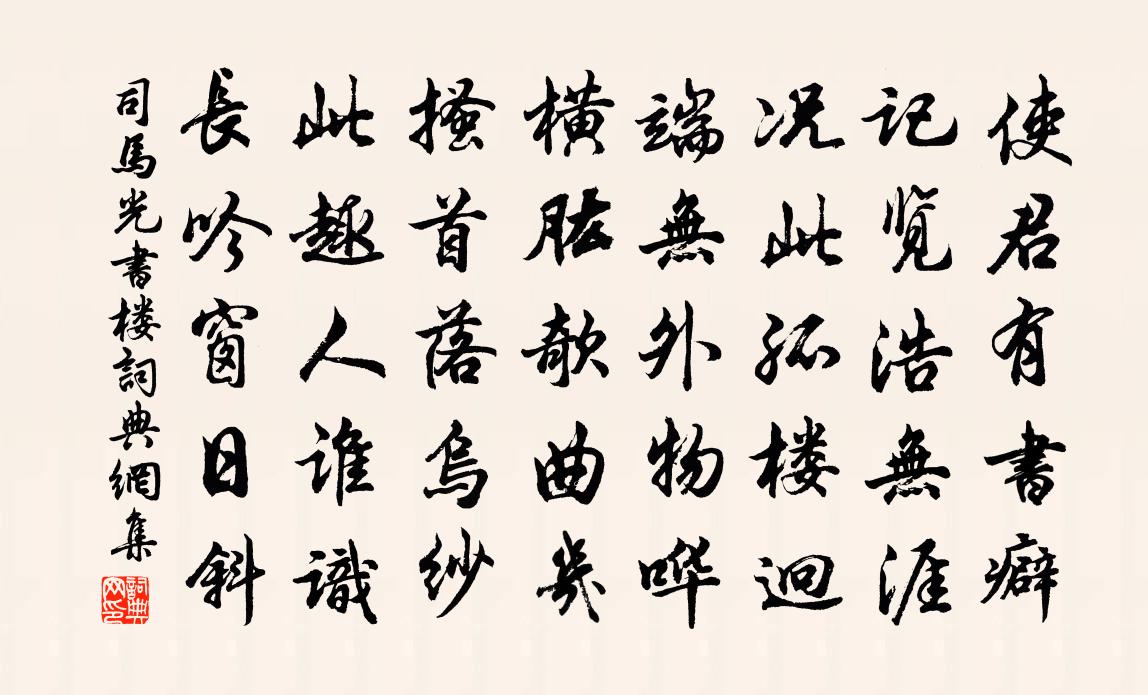 使君有書癖
記览浩無涯
况此孤楼迥
端無外物哗
横肱欹曲几
搔首落烏紗
此趣人谁識
長吟窗日斜
司馬光書楼詞典網集
詞典网印